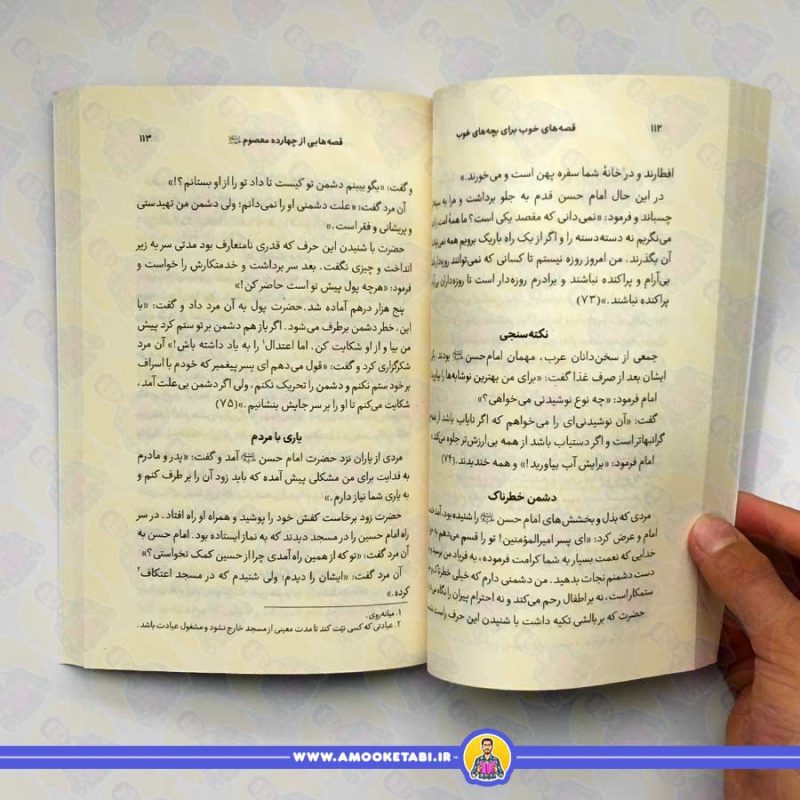 ۱۱۲
قصه‌های خوب برای بچه‌های خوب
افطارند و در خانهٔ شما سفره پهن است و می‌خورند.»
در این حال امام حسن قدم به جلو برداشت و مرا به سینه
چسباند و فرمود: «نمی‌دانی که مقصد یکی است؟ ما همهٔ امت را
می‌نگریم نه دسته‌دسته را و اگر از یک راه باریک برویم همه نمی‌توانند
آن بگذرند. من امروز روزه نیستم تا کسانی که نمی‌توانند روزه‌دار
بی‌آرام و پراکنده نباشند و برادرم روزه‌دار است تا روزه‌داران بی‌آرام
پراکنده نباشند.»(۷۳)
نکته‌سنجی
جمعی از سخن‌دانان عرب، مهمان امام حسن بودند. یکی
ایشان بعد از صرف غذا گفت: «برای من بهترین نوشابه‌ها را بیاورید
امام فرمود: «چه نوع نوشیدنی می‌خواهی؟»
گفت: «آن نوشیدنی‌ای را می‌خواهم که اگر نایاب باشد از همه
گرانبهاتر است و اگر دستیاب باشد از همه بی‌ارزش‌تر جلوه می‌کند
امام فرمود: «برایش آب بیاورید!» و همه خندیدند.(۷۴)
دشمن خطرناک
مردی که بذل و بخشش‌های امام حسن را شنیده بود، آمد خدمت
امام و عرض کرد: «ای پسر امیرالمؤمنین! تو را قسم می‌دهم به
خدایی که نعمت بسیار به شما کرامت فرموده، به فریاد من برسید و از
دست دشمنم نجات بدهید. من دشمنی دارم که خیلی خطرناک و
ستمکار است، نه بر اطفال رحم می‌کند و نه احترام پیران را نگاه می‌دارد
حضرت که بر بالشی تکیه داشت با شنیدن این حرف راست
قصه‌هایی از چهارده معصوم
۱۱۳
و گفت: «بگو ببینم دشمن تو کیست تا داد تو را از او بستانم؟!»
آن مرد گفت: «علت دشمنی او را نمی‌دانم؛ ولی دشمن من تهیدستی
و پریشانی و فقر است.»
حضرت با شنیدن این حرف که قدری نامتعارف بود مدتی سر به زیر
انداخت و چیزی نگفت. بعد سر برداشت و خدمتکارش را خواست و
فرمود: «هرچه پول پیش تو است حاضر کن!»
پنج هزار درهم آماده شد. حضرت پول به آن مرد داد و گفت: «با
این، خطر دشمن برطرف می‌شود. اگر باز هم دشمن بر تو ستم کرد پیش
من بیا و از او شکایت کن. اما اعتدال۱ را به یاد داشته باش!» آن مرد
شکرگزاری کرد و گفت: «قول می‌دهم ای پسر پیغمبر که خودم با اسراف
بر خود ستم نکنم و دشمن را تحریک نکنم، ولی اگر دشمن بی‌علت آمد،
شکایت می‌کنم تا او را بر سر جایش بنشانیم.»(۷۵)
یاری با مردم
مردی از یاران نزد حضرت امام حسن آمد و گفت: «پدر و مادرم
به فدایت برای من مشکلی پیش آمده که باید زود آن را بر طرف کنم و
به یاری شما نیاز دارم.»
حضرت زود برخاست کفش خود را پوشید و همراه او راه افتاد. در سر
راه امام حسین را در مسجد دیدند که به نماز ایستاده بود. امام حسن به
آن مرد گفت: «تو که از همین راه آمدی چرا از حسین کمک نخواستی؟»
آن مرد گفت: «ایشان را دیدم؛ ولی شنیدم که در مسجد اعتکاف۲
کرده.»
۱. میانه‌روی.
۲. عبادتی که کسی نیّت کند تا مدت معینی از مسجد خارج نشود و مشغول عبادت باشد.
WWW.AMOOKETABI.IR